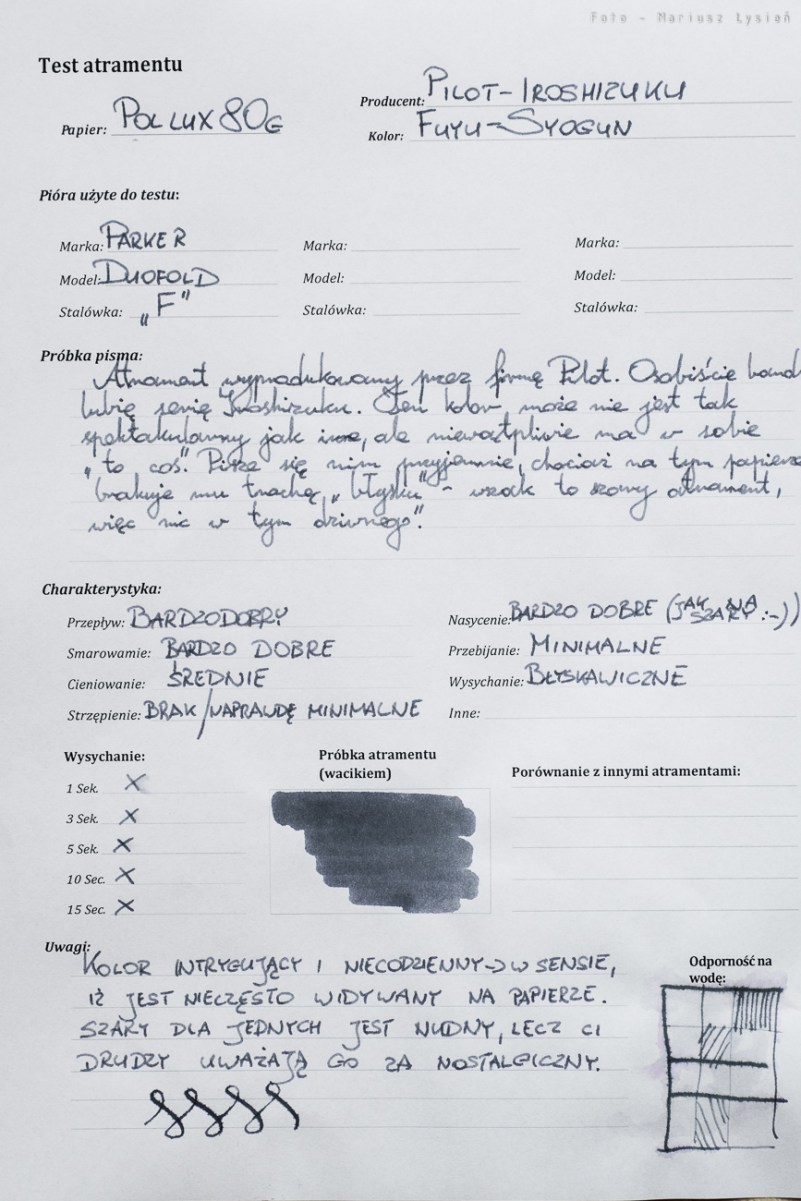 Foto - Mariusz Łysień
Test atramentu
Papier: POLLUX 80G
Producent: PILOT - IROSHIZUKU
Kolor: FUYU-SYOGUN
Pióra użyte do testu:
Marka: PARKER
Marka:
Marka:
Model: DUOFOLD
Model:
Model:
Stalówka: „F"
Stalówka:
Stalówka:
Próbka pisma:
Atrament wyprodukowany przez firmę Pilot. Osobiście
lubię serię Iroshizuku. Ten kolor może nie jest tak
spektakularny jak inne, ale niewątpliwie ma w sobie
„to coś". Pisze się nim przyjemnie, chociaż na tym
brakuje mu trochę „błysku" - wszak to szary atrament,
więc nic w tym dziwnego".
Charakterystyka:
Przepływ: BARDZO DOBRY
Nasycenie: BARDZO DOBRE (JAK NA SZARY :-))
Smarowamie: BARDZO DOBRE
Przebijanie: MINIMALNE
Cieniowanie: ŚREDNIE
Wysychanie: BŁYSKAWICZNE
Strzępienie: BRAK/NAPRAWDĘ MINIMALNE
Inne:
Wysychanie:
Próbka atramentu
(wacikiem)
Porównanie z innymi atramentami:
1 Sek. X
3 Sek. X
5 Sek. X
10 Sec. X
15 Sec. X
Uwagi:
KOLOR INTRYGUJĄCY I NIECODZIENNY -> W SENSIE,
IŻ JEST NIECZĘSTO WIDYWANY NA PAPIERZE.
SZARY DLA JEDNYCH JEST NUDNY, LECZ CI
DRUDZY UWAŻAJĄ GO ZA NOSTALGICZNY.
Odporność na
wodę: